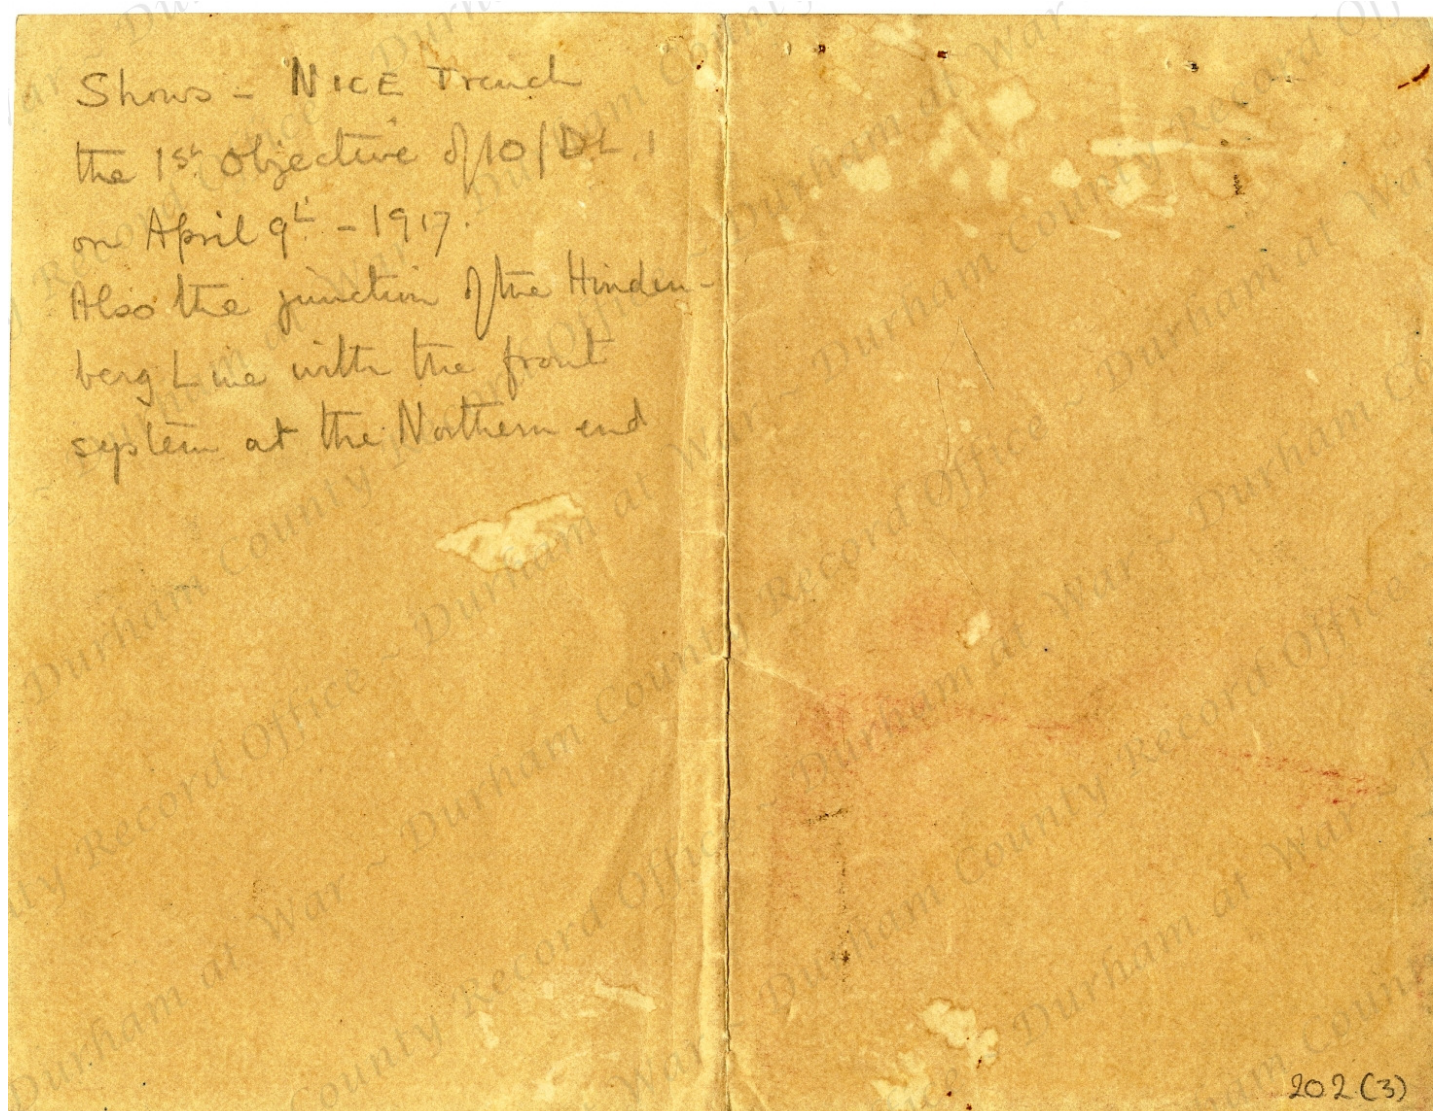 Shows – NICE Trench
the 1st Objective of 10/DLI
on April 9th – 1917.
Also the junction of the Hinden-
berg Line with the front
system at the Northern end
202(3)
Durham at War ~ Durham County Record Office